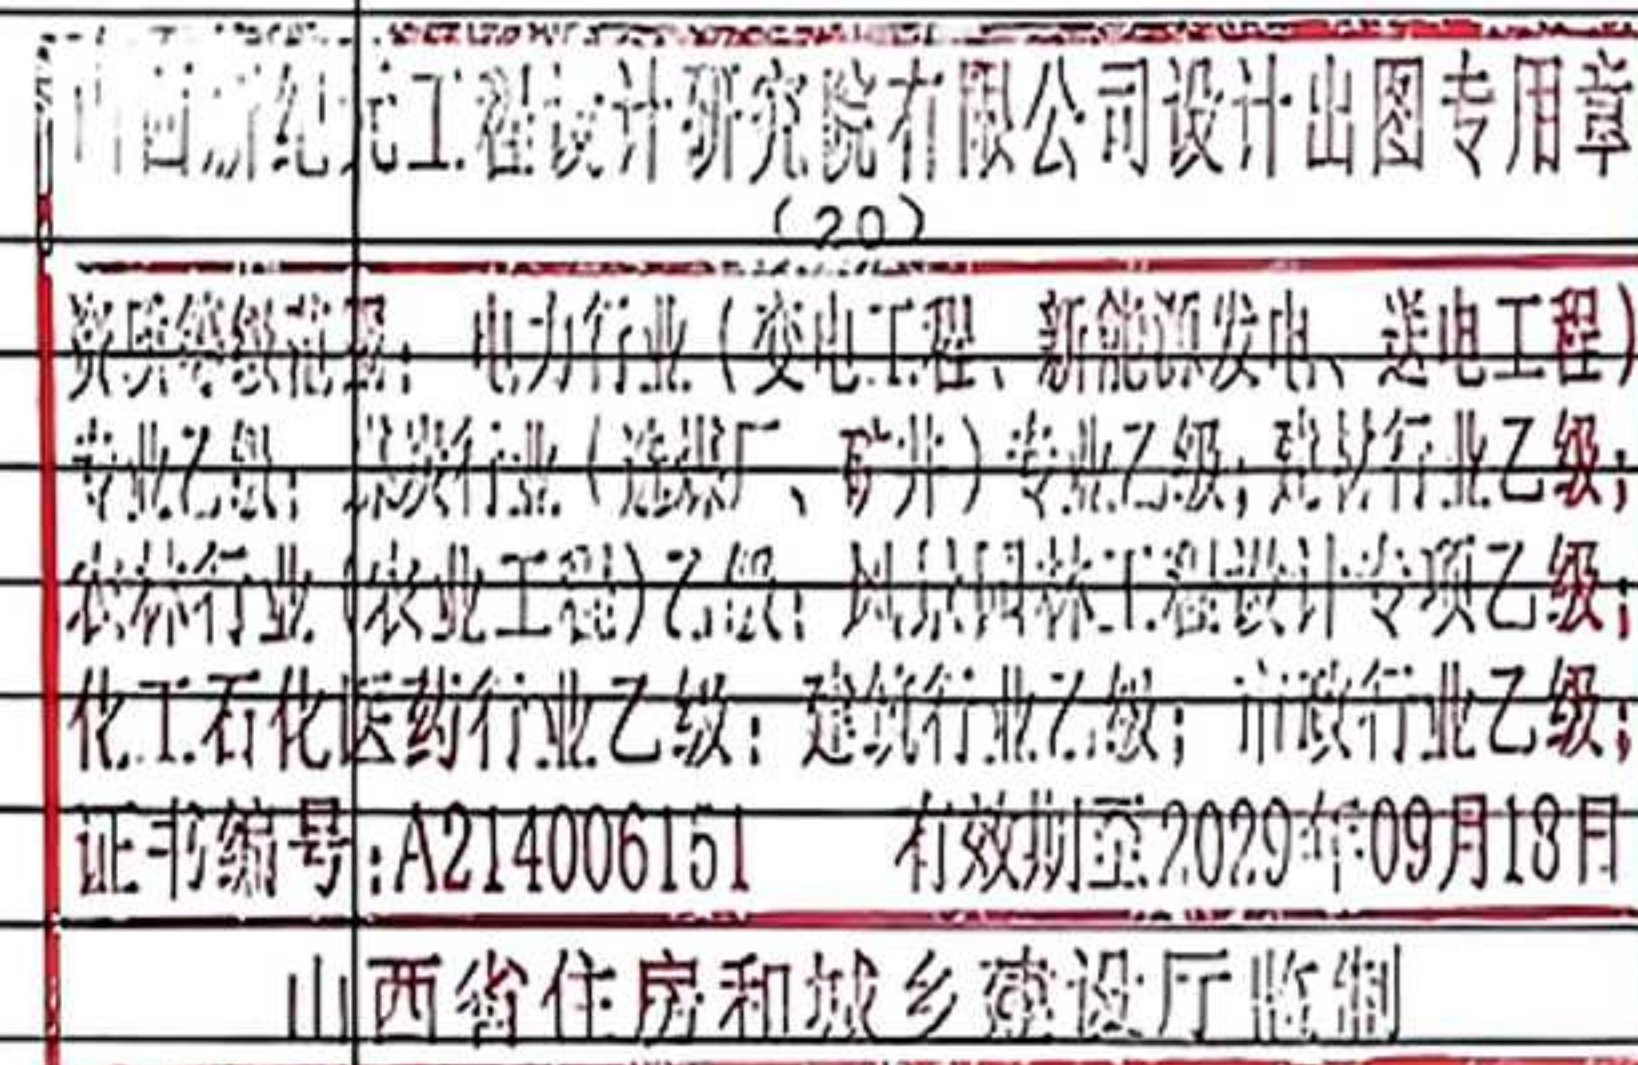 山西新纪元工程设计研究院有限公司设计出图专用章
(20)
资质等级范围：电力行业(变电工程、新能源发电、送电工程)
专业乙级；煤炭行业(选煤厂、矿井)专业乙级；建材行业乙级；
农林行业(农业工程)乙级；风景园林工程设计专项乙级；
化工石化医药行业乙级；建筑行业乙级；市政行业乙级；
证书编号：A214006151 有效期至2029年09月18月
山西省住房和城乡建设厅监制